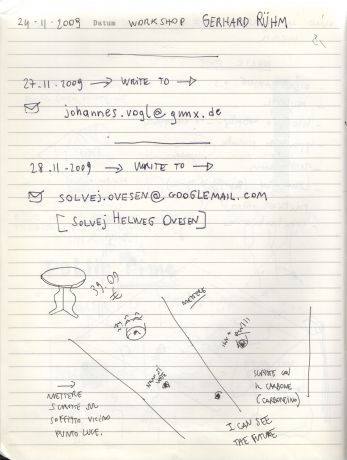 24-11-2009 Datum WORKSHOP GERHARD RÜHM
27.11.2009 → WRITE TO →
johannes.vogl@gmx.de
28.11-2009 → WRITE TO →
SOLVEJ.OVESEN@GOOGLEMAIL.COM
[SOLVEJ HELWEG OVESEN]
39.09
METTERE
SCRITTE SUL
SOFFITTO VICINO
PUNTO LUCE.
(CARBONCINO)
I CAN SEE
THE FUTURE